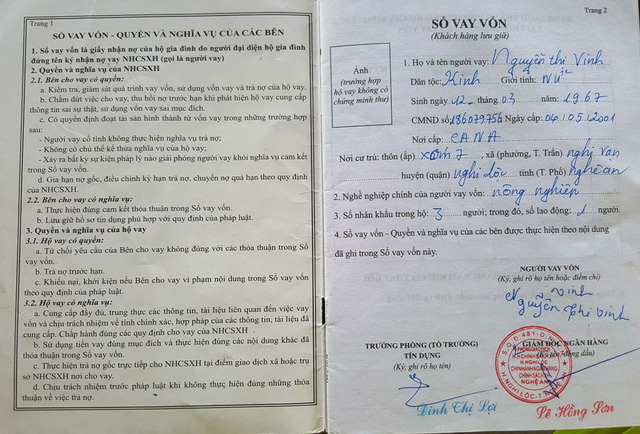 Trang 1
SỔ VAY VỐN - QUYỀN VÀ NGHĨA VỤ CỦA CÁC BÊN
1. Sổ vay vốn là giấy nhận nợ của hộ gia đình do người đại diện hộ gia đình
đứng tên ký nhận nợ vay NHCSXH (gọi là người vay)
2. Quyền và nghĩa vụ của NHCSXH
2.1. Bên cho vay có quyền:
a. Kiểm tra, giám sát quá trình vay vốn, sử dụng vốn vay và trả nợ của hộ vay.
b. Chấm dứt việc cho vay, thu hồi nợ trước hạn khi phát hiện hộ vay cung cấp
thông tin sai sự thật, sử dụng vốn vay sai mục đích.
c. Có quyền định đoạt tài sản hình thành từ vốn vay trong những trường hợp
sau:
- Người vay cố tình không thực hiện nghĩa vụ trả nợ;
- Không có chủ thể kế thừa nghĩa vụ của hộ vay;
- Xảy ra bất kỳ sự kiện pháp lý nào giải phóng người vay khỏi nghĩa vụ cam kết
trong Sổ vay vốn.
d. Gia hạn nợ gốc, điều chỉnh kỳ hạn trả nợ, chuyển nợ quá hạn theo quy định
của NHCSXH.
2.2. Bên cho vay có nghĩa vụ:
a. Thực hiện đúng cam kết thỏa thuận trong Sổ vay vốn.
b. Lưu giữ hồ sơ tín dụng phù hợp với quy định của pháp luật.
3. Quyền và nghĩa vụ của hộ vay
3.1. Hộ vay có quyền:
a. Từ chối yêu cầu của Bên cho vay không đúng với các thỏa thuận trong Sổ
vay vốn.
b. Trả nợ trước hạn.
c. Khiếu nại, khởi kiện nếu Bên cho vay vi phạm nội dung trong Sổ vay vốn
theo quy định của pháp luật.
3.2. Hộ vay có nghĩa vụ:
a. Cung cấp đầy đủ, trung thực các thông tin, tài liệu liên quan đến việc vay
vốn và chịu trách nhiệm về tính chính xác, hợp pháp của các thông tin, tài liệu đã
cung cấp. Chấp hành đúng các quy định cho vay của NHCSXH .
b. Sử dụng tiền vay đúng mục đích và thực hiện đúng các nội dung khác đã
thỏa thuận trong Sổ vay vốn.
c. Thực hiện trả nợ gốc trực tiếp cho NHCSXH tại điểm giao dịch xã hoặc trụ
sở NHCSXH nơi cho vay.
d. Chịu trách nhiệm trước pháp luật khi không thực hiện đúng những thỏa
thuận về việc trả nợ.
Trang 2
SỔ VAY VỐN
(Khách hàng lưu giữ)
Ảnh
(trường hợp
hộ vay không có
chứng minh thư)
1. Họ và tên người vay: Nguyễn thị Vinh
Dân tộc: Kinh Giới tính: Nữ
Sinh ngày 12 tháng 03 năm: 1967
CMND số: 186079756 Ngày cấp: 04/05/2001
Nơi cấp: CANA
Nơi cư trú: thôn (ấp) xóm 7, xã (phường, T. Trấn) nghị Vạn
huyện (quận) nghi Lộc tỉnh (T. Phố) Nghệ an
2. Nghề nghiệp chính của người vay vốn: nông nghiệp
3. Số nhân khẩu trong hộ: 3 người; trong đó, số lao động: 1 người.
4. Sổ vay vốn - Quyền và nghĩa vụ của các bên được thực hiện theo nội dung
đã ghi trong Sổ vay vốn này.
NGƯỜI VAY VỐN
(Ký, ghi rõ họ tên hoặc điểm chỉ)
Vinh
Nguyễn thi Vinh
TRƯỞNG PHÒNG (TỔ TRƯỞNG)
TÍN DỤNG
(Ký, ghi rõ họ tên)
GIÁM ĐỐC NGÂN HÀNG
Đinh Thị Lợi
Lê Hồng Sơn